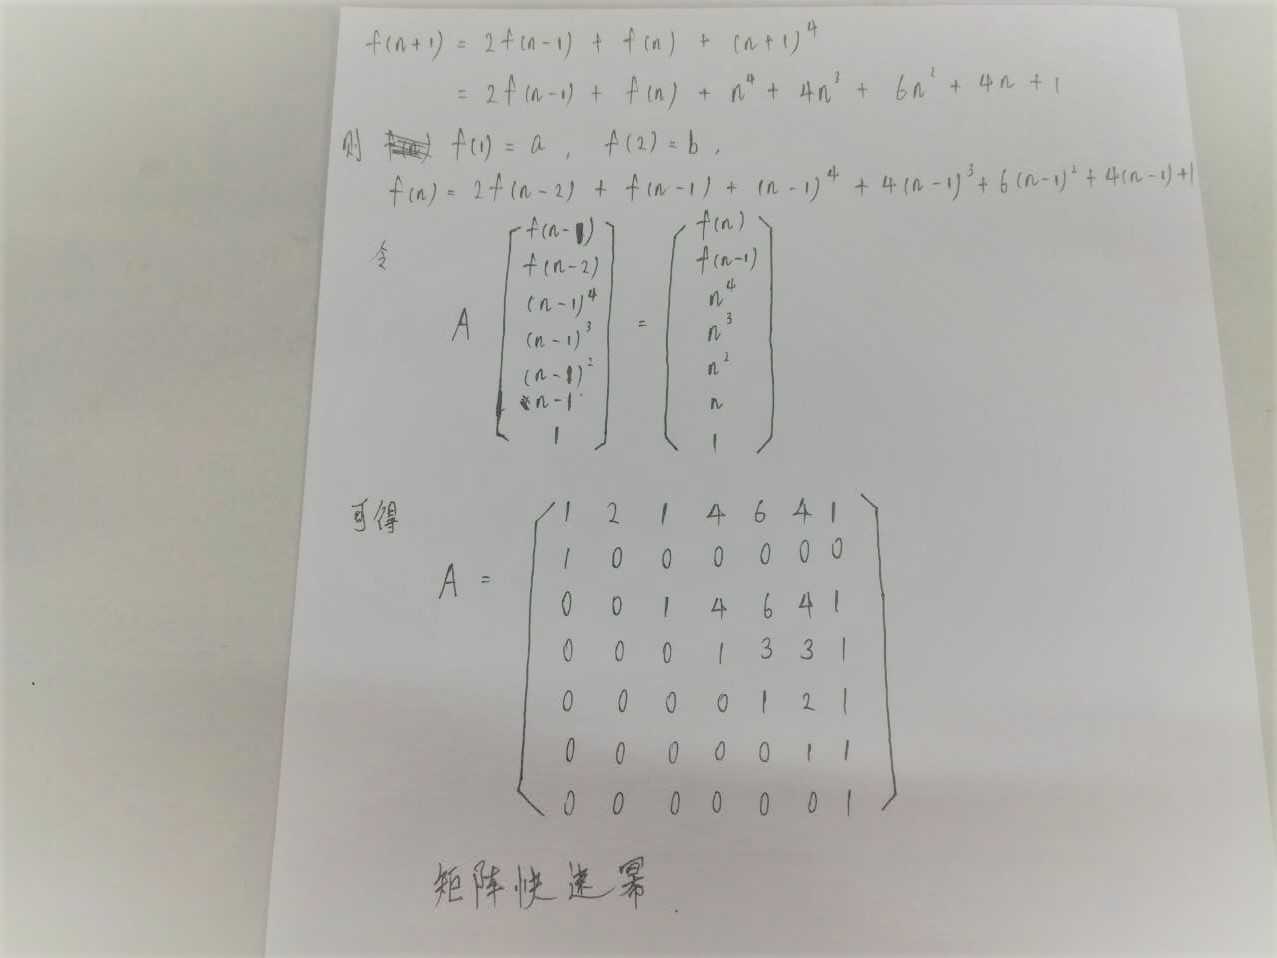 f(n+1) = 2f(n-1) + f(n) + (n+1)⁴
= 2f(n-1) + f(n) + n⁴ + 4n³ + 6n² + 4n + 1
则 f(1) = a , f(2) = b ,
f(n) = 2f(n-2) + f(n-1) + (n-1)⁴ + 4(n-1)³ + 6(n-1)² + 4(n-1) + 1
令
A
f(n-1)
f(n-2)
(n-1)⁴
(n-1)³
(n-1)²
n-1
1
=
f(n)
f(n-1)
n⁴
n³
n²
n
1
可得
A =
1 2 1 4 6 4 1
1 0 0 0 0 0 0
0 0 1 4 6 4 1
0 0 0 1 3 3 1
0 0 0 0 1 2 1
0 0 0 0 0 1 1
0 0 0 0 0 0 1
矩阵快速幂.